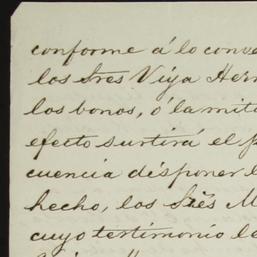 conforme á lo conve
los Sres Viya Her
los bonos, ó la mit
efecto surtirá el p
cuencia disponer l
hecho, los Sres M
cuyo testimonio le